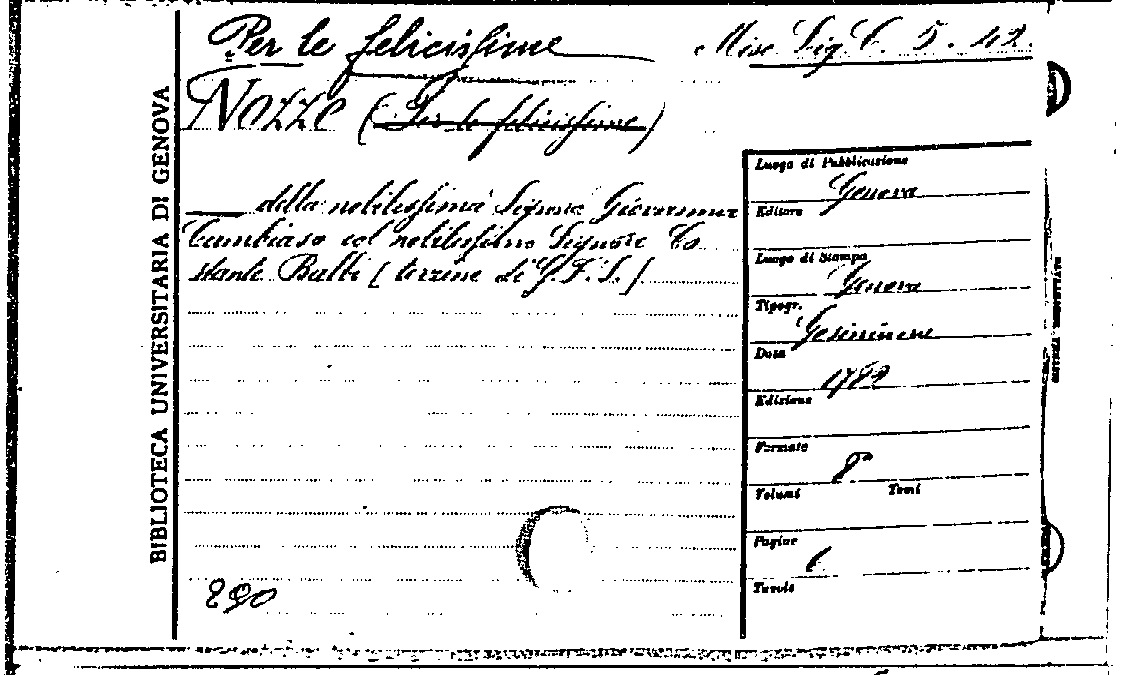 BIBLIOTECA UNIVERSITARIA DI GENOVA
Per le felicissime
Misc Lig. C. 5. 42.
NOZZE (Per le felicissime)
della nobilissima Signora Giovanna
Cambiaso col nobilissimo Signore Co
stante Balbi [terzine di G.F.S.]
290
Luogo di Pubblicazione
Genova
Editore
Luogo di Stampa
Genova
Tipogr.
Gesiniana
Data
1789
Edizione
Formato
8º
Volumi Tomi
Pagine
Tavole